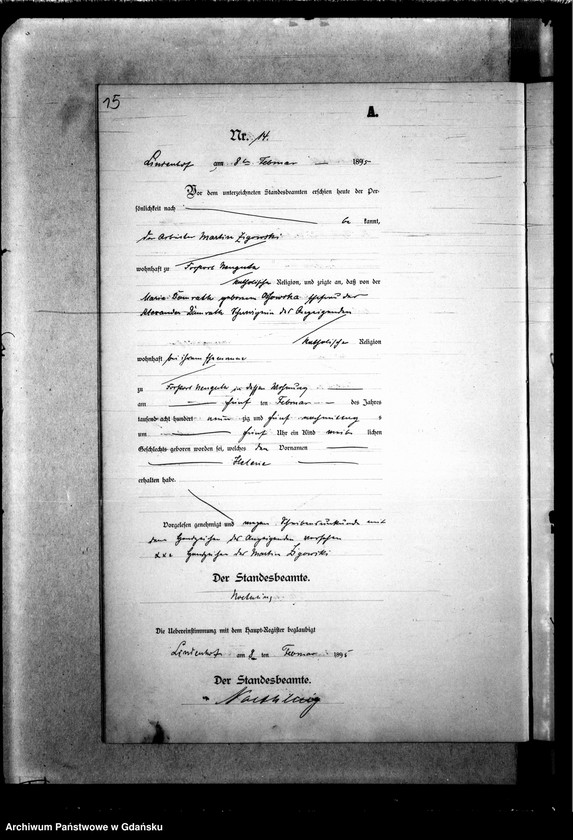 15
A.
Nr. 14.
Lindenhof am 8ten Februar 1895
Vor dem unterzeichneten Standesbeamten erschien heute der Per-
sönlichkeit nach
be kannt,
der Arbeiter Martin
wohnhaft zu Forsort
katholischer Religion, und zeigte an, daß von der
Maria geborenen Ehefrau des
Alexander des Anzeigenden
katholischer Religion
wohnhaft bei ihrem Ehemanne
zu Forsort in dessen Wohnung
am fünf ten Februar des Jahres
tausend acht hundert neun zig und fünf nachmittag s
um fünf Uhr ein Kind weib lichen
Geschlechts geboren worden sei, welches den Vornamen
Helene
erhalten habe.
Vorgelesen genehmigt und wegen Schreibensunkunde mit
dem Handzeichen des Anzeigenden versehen
xxx Handzeichen des Martin
Der Standesbeamte.
Die Uebereinstimmung mit dem Haupt-Register beglaubigt
Lindenhof am 8 ten Februar 1895
Der Standesbeamte.
Archiwum Państwowe w Gdańsku